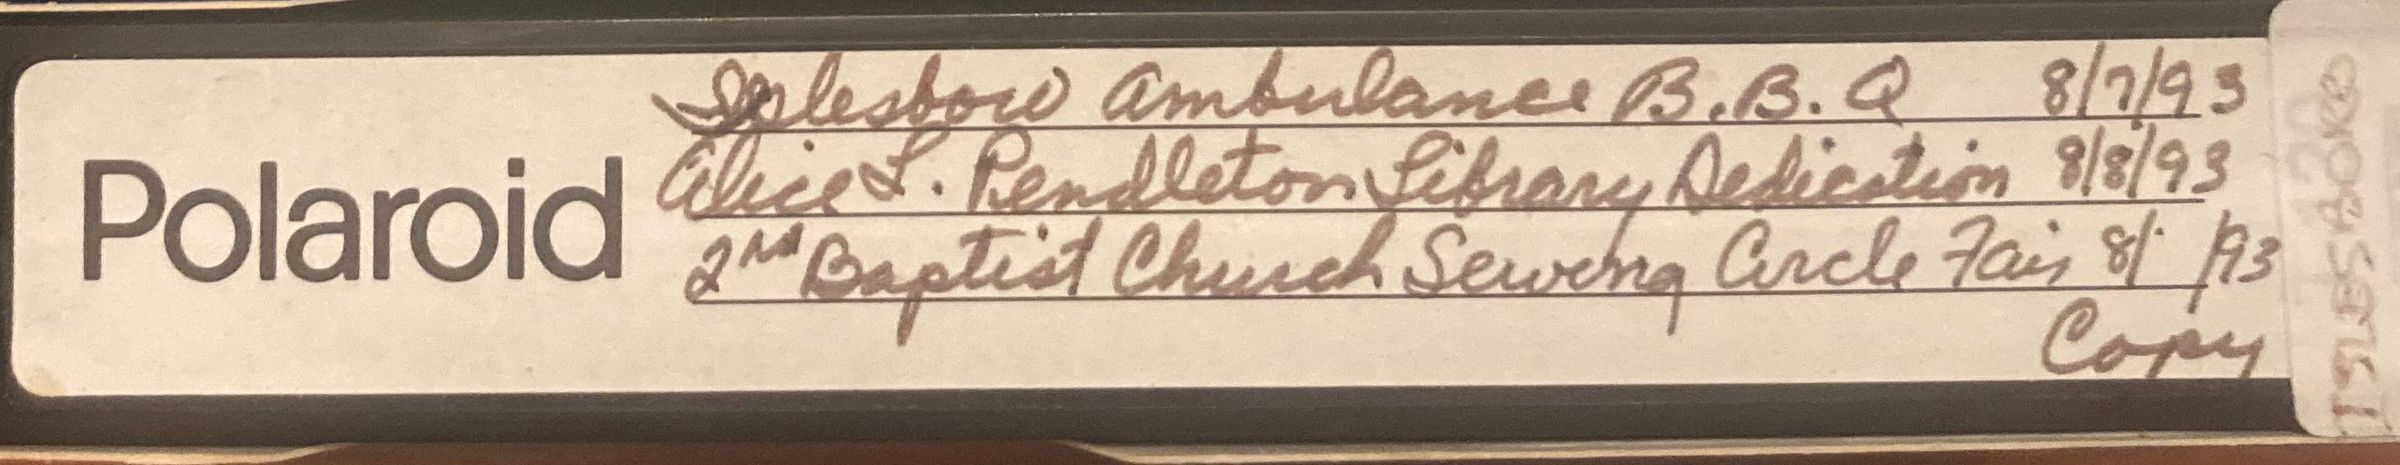 Polaroid
Islesboro Ambulance B.B.Q 8/7/93
Alice L. Pendleton Library Dedication 8/8/93
2nd Baptist Church Sewing Circle Fair 8/ /93
Copy
ISLESBORO